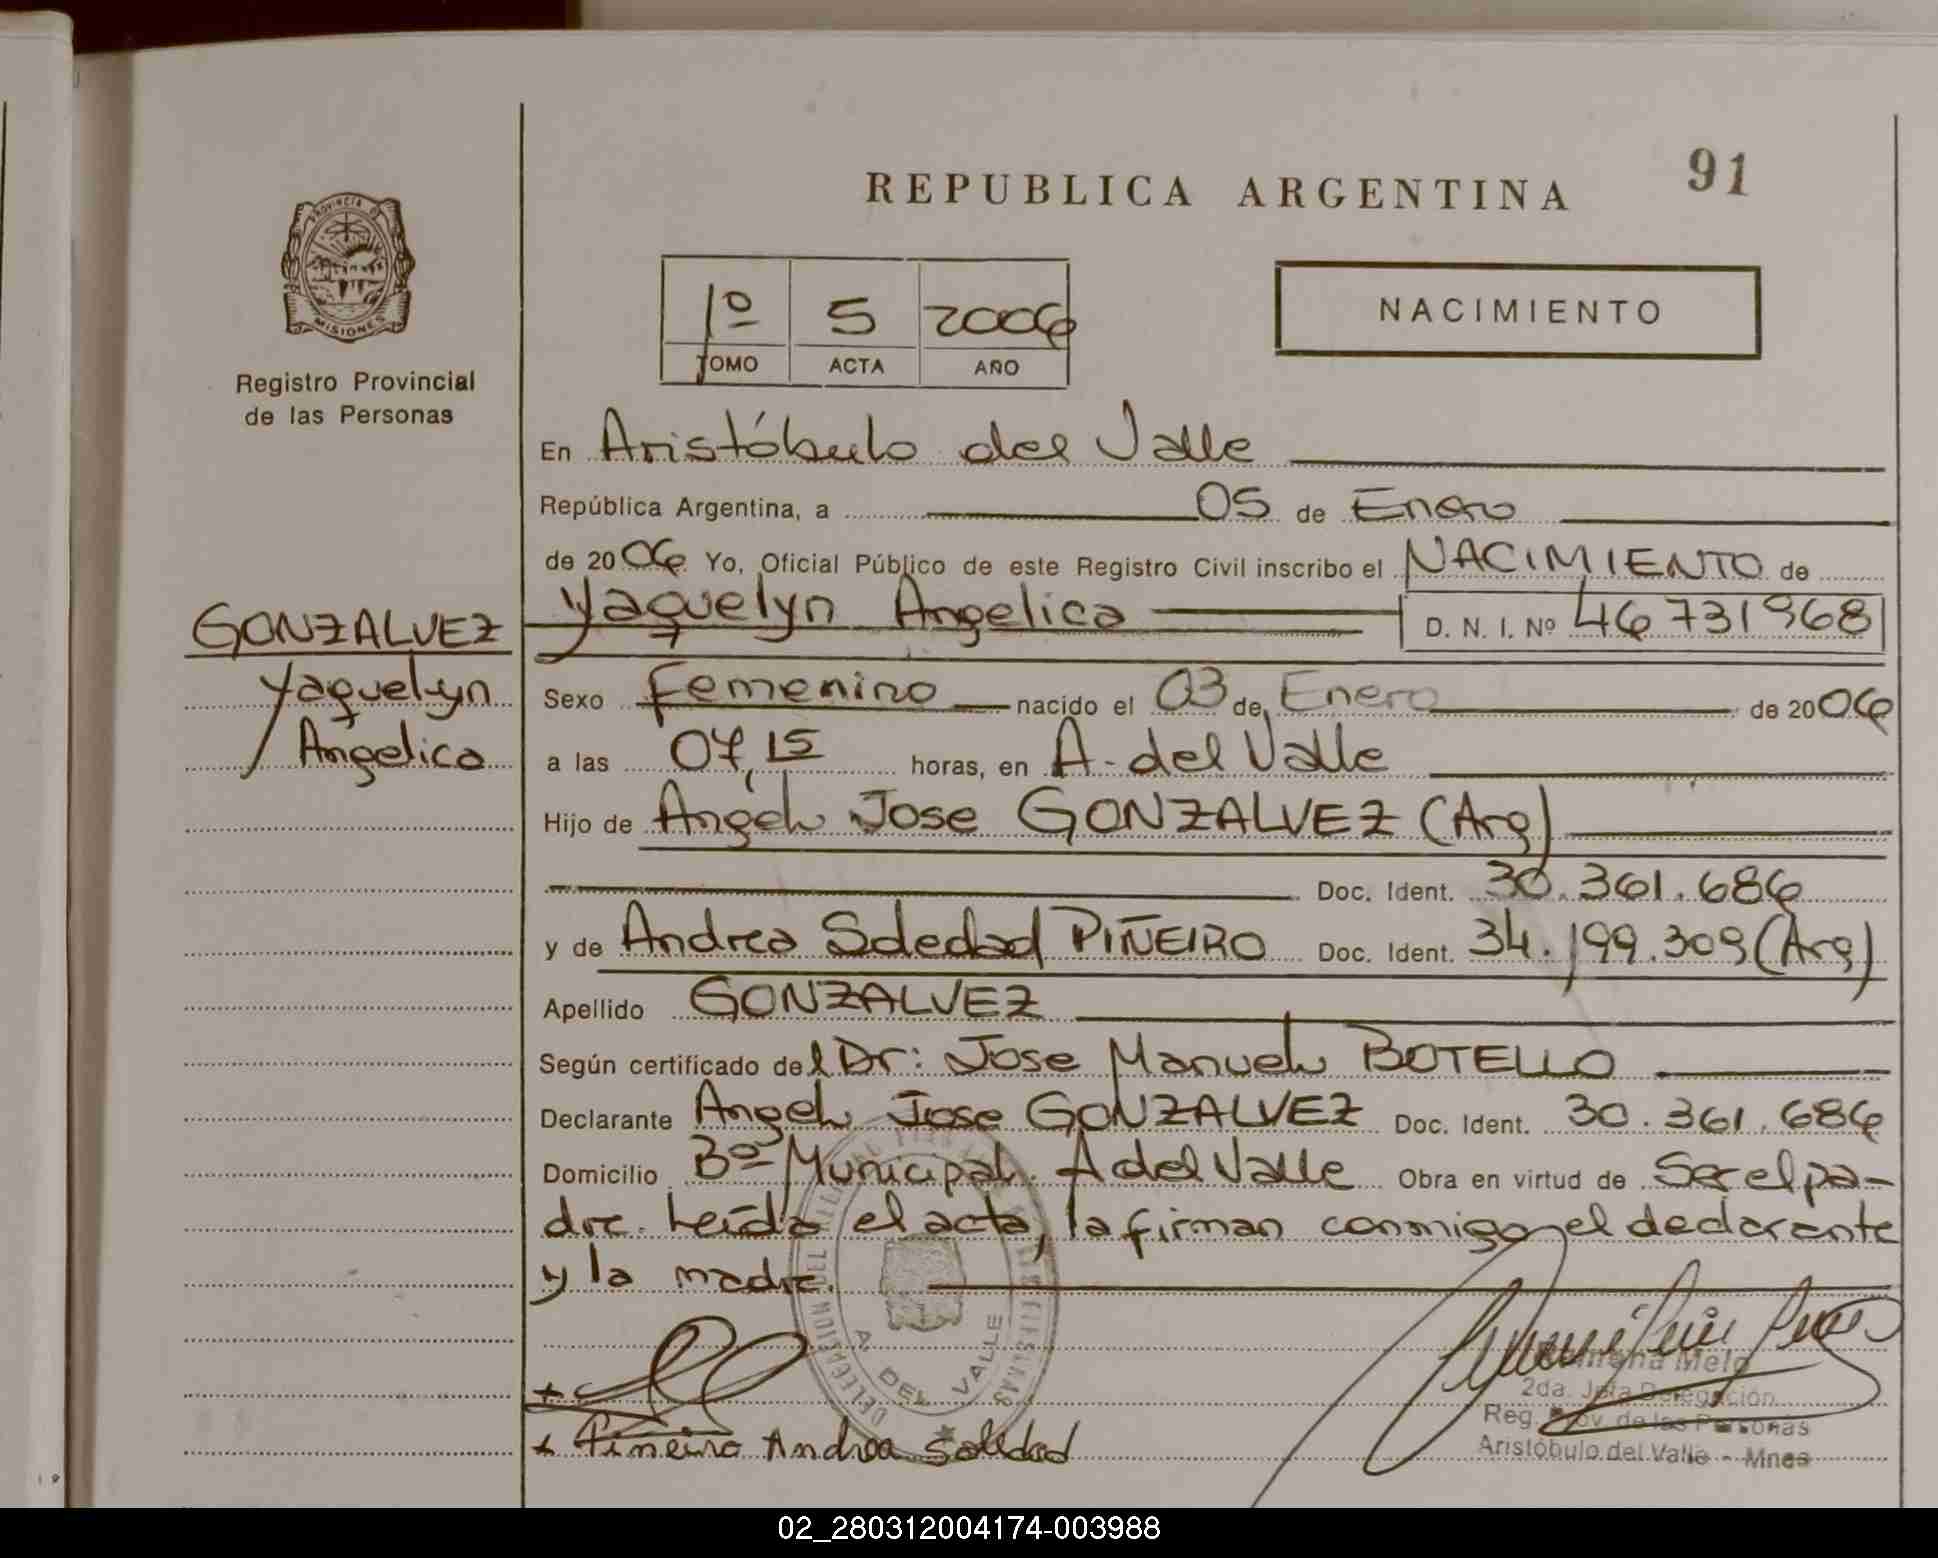 91
REPUBLICA ARGENTINA
PROVINCIA D
MISIONES
Registro Provincial
de las Personas
1º 5 2006
TOMO ACTA AÑO
NACIMIENTO
En Aristóbulo del Valle
República Argentina, a 05 de Enero
de 2006 Yo, Oficial Público de este Registro Civil inscribo el NACIMIENTO de
Yaquelyn Angelica D. N. I. Nº 46731968
GONZALVEZ
Yaquelyn
Angelica
Sexo femenino nacido el 03 de Enero de 2006
a las 07,15 horas, en A. del Valle
Hijo de Angel Jose GONZALVEZ (Arg)
Doc. Ident. 30.361.686
y de Andrea Soledad PIÑEIRO Doc. Ident. 34.199.309 (Arg)
Apellido GONZALVEZ
Según certificado del Dr: Jose Manuel BOTELLO
Declarante Angel Jose GONZALVEZ Doc. Ident. 30.361.686
Domicilio Bº Municipal. A del Valle Obra en virtud de Ser el pa-
dre. Leída el acta, la firman conmigo el declarante
y la madre.
DELEGACION DEL
A. DEL VALLE
+
+ Piñeiro Andrea Soledad
Melo
2da. Jefa Delegación
Reg. Prov. de las Personas
Aristóbulo del Valle - Mnes
02_280312004174-003988